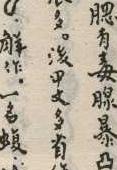 腮有毒腺暴凸
多。後田文多有
解作。一名蝮